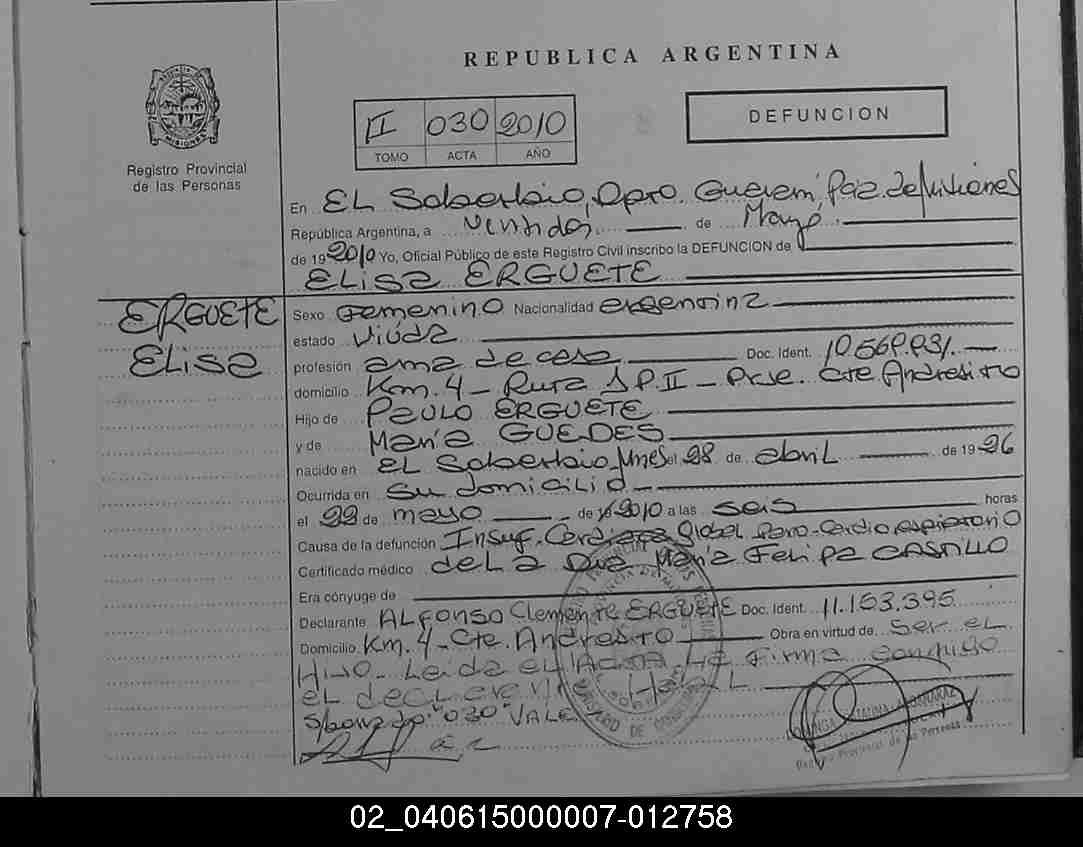 REPUBLICA ARGENTINA
II 030 2010
TOMO ACTA AÑO
DEFUNCION
MISIONES
Registro Provincial
de las Personas
En EL Soberbio, Dpto. Guaraní, Pcia. de Misiones
República Argentina, a Ventidos de Mayo
de 19 2010 Yo, Oficial Público de este Registro Civil inscribo la DEFUNCION de
ELISA ERGUETE
ERGUETE
ELisa
Sexo Femenino Nacionalidad argentina
estado Viúda
profesión ama de casa Doc. Ident.
domicilio Km. 4 - Ruta P. II - Cte. Andresito
Hijo de PAULO ERGUETE
y de María GUEDES
nacido en EL Soberbio, Mnes el 28 de abril de 19 26
Ocurrida en Su domicilio
el 22 de mayo de 19 2010 a las seis horas
Causa de la defunción Insuf. Cardiaca Global Paro-Cardiorespiratorio
Certificado médico de La Dra María Felipa CASTILLO
Era cónyuge de
Declarante ALFONSO Clemente ERGUETE Doc. Ident. 11.153.395
Domicilio Km. 4 - Cte. Andresito Obra en virtud de Ser el
Hijo - Leida el Acta, La Firma conmigo
el declarante
S/borrado: "030" VALE
Registro Provincial de las Personas
02_040615000007-012758